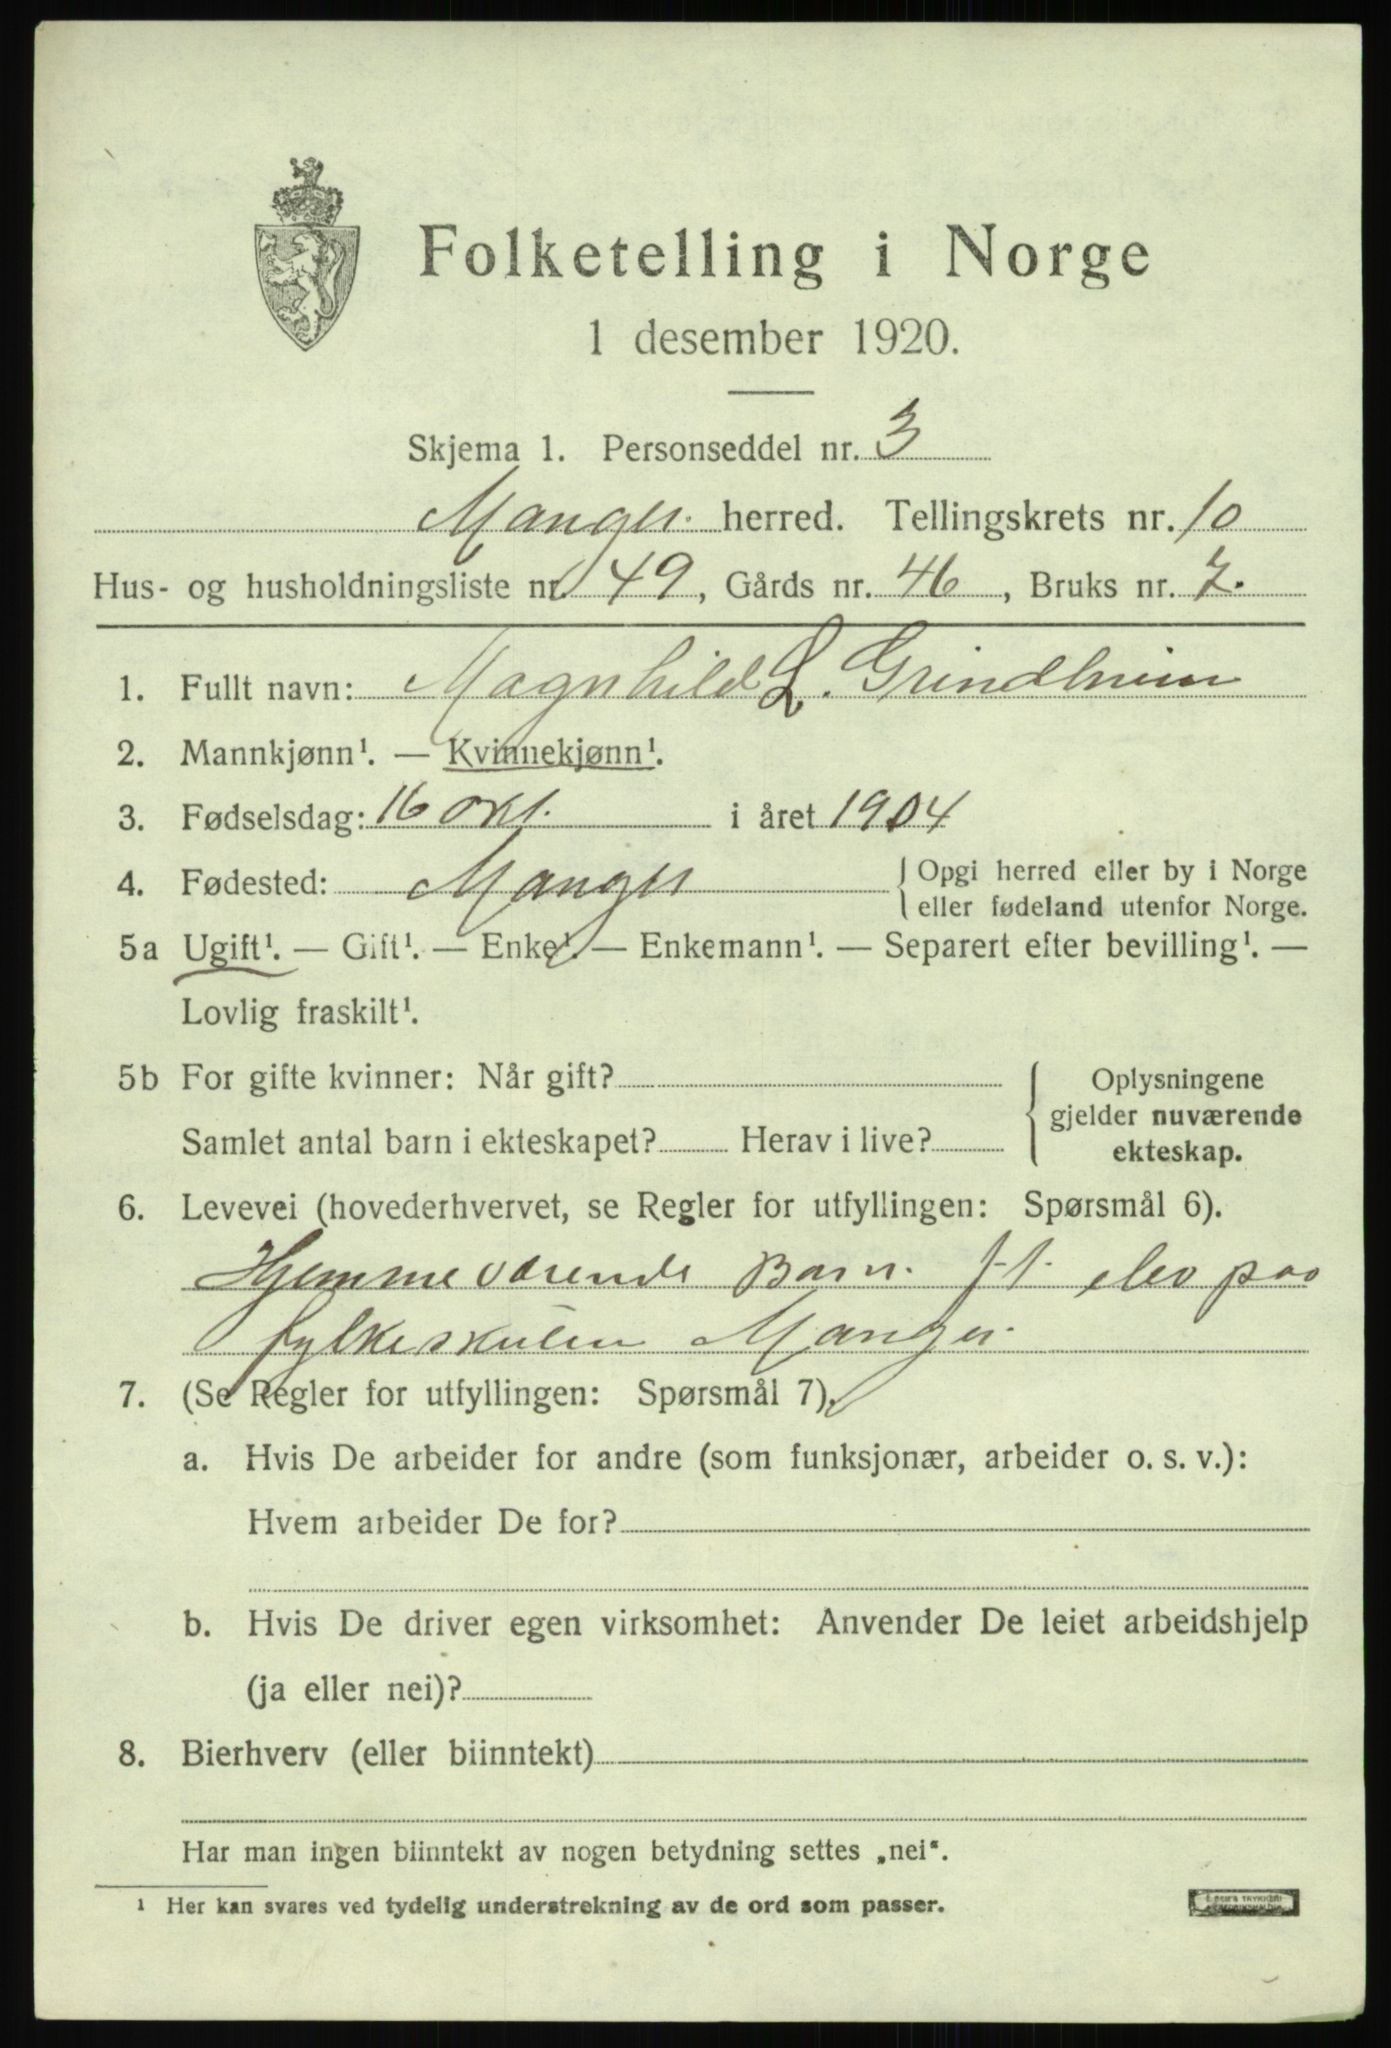 Folketelling i Norge
1 desember 1920.
Skjema 1. Personseddel nr. 3
Manger herred. Tellingskrets nr. 10
Hus- og husholdningsliste nr. 49, Gårds nr. 46, Bruks nr. 7.
1. Fullt navn: Magnhild L. Grindheim
2. Mannkjønn¹. — Kvinnekjønn¹.
3. Fødselsdag: 16 okt. i året 1904
4. Fødested: Manger { Opgi herred eller by i Norge
eller fødeland utenfor Norge.
5a Ugift¹. — Gift¹. — Enke¹. — Enkemann¹. — Separert efter bevilling¹. —
Lovlig fraskilt¹.
5b For gifte kvinner: Når gift? { Oplysningene
gjelder nuværende
Samlet antal barn i ekteskapet? Herav i live? ekteskap.
6. Levevei (hovederhvervet, se Regler for utfyllingen: Spørsmål 6).
Hjemmeværende Barn. f.t. elev paa
fylkeskulen Manger.
7. (Se Regler for utfyllingen: Spørsmål 7).
a. Hvis De arbeider for andre (som funksjonær, arbeider o. s. v.):
Hvem arbeider De for?
b. Hvis De driver egen virksomhet: Anvender De leiet arbeidshjelp
(ja eller nei)?
8. Bierhverv (eller biinntekt)
Har man ingen biinntekt av nogen betydning settes „nei“.
¹ Her kan svares ved tydelig understrekning av de ord som passer.